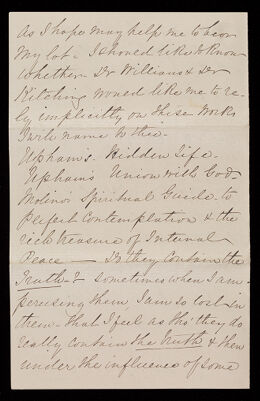 as I hope may help me to bear
my lot - I should like to know
whether Dr Williams & Dr
Kitching would like me to re-
ly implicitly on these works
I will name to thee -
Upham's Hidden Life -
Upham's Union with God -
Molino's Spiritual Guide to
Perfect Contemplation & the
rich treasure of Internal
Peace — Do they contain the
Truth? sometimes when I am
perusing them, I am so lost in
them - that I feel as tho' they do
really contain the Truth & then
under the influence of some